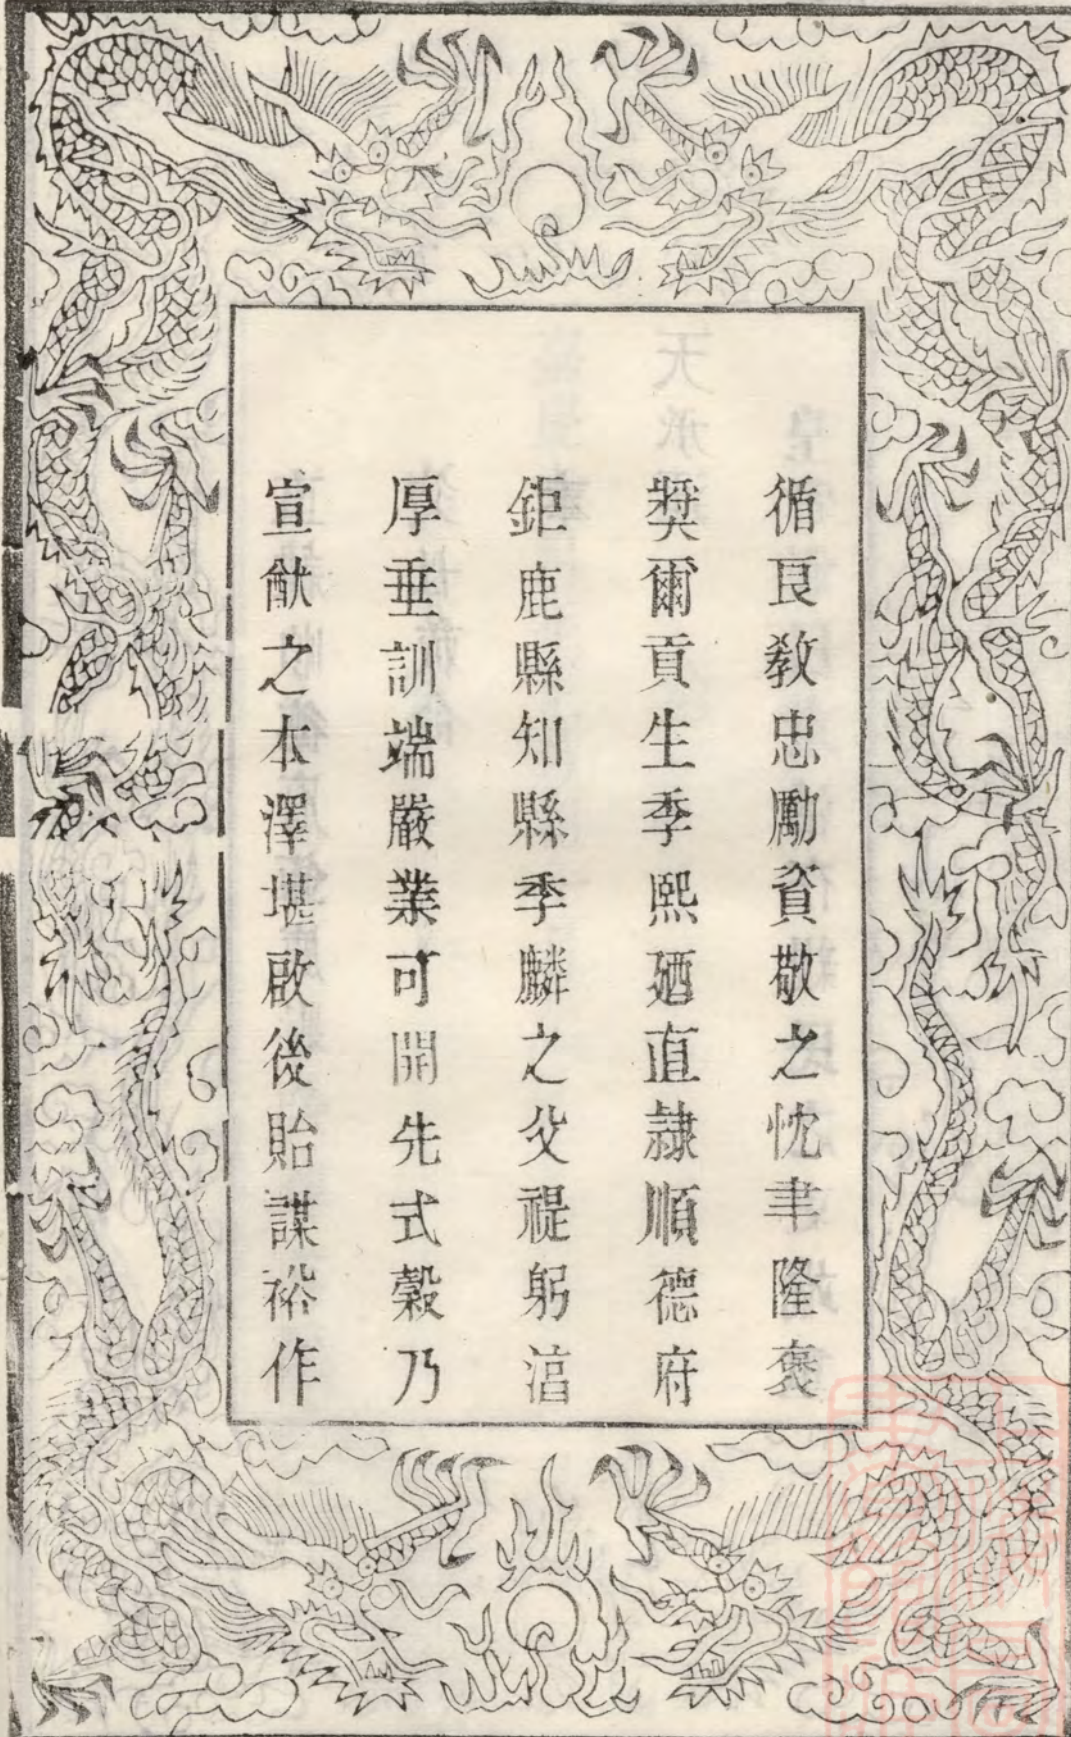 循良敎忠勵資敬之忱聿隆褒
奬爾貢生季熙廼直隷順德府
鉅鹿縣知縣季麟之父禔躬湻
厚垂訓端嚴業可開先式穀乃
宣猷之本澤堪啟後貽謀裕作